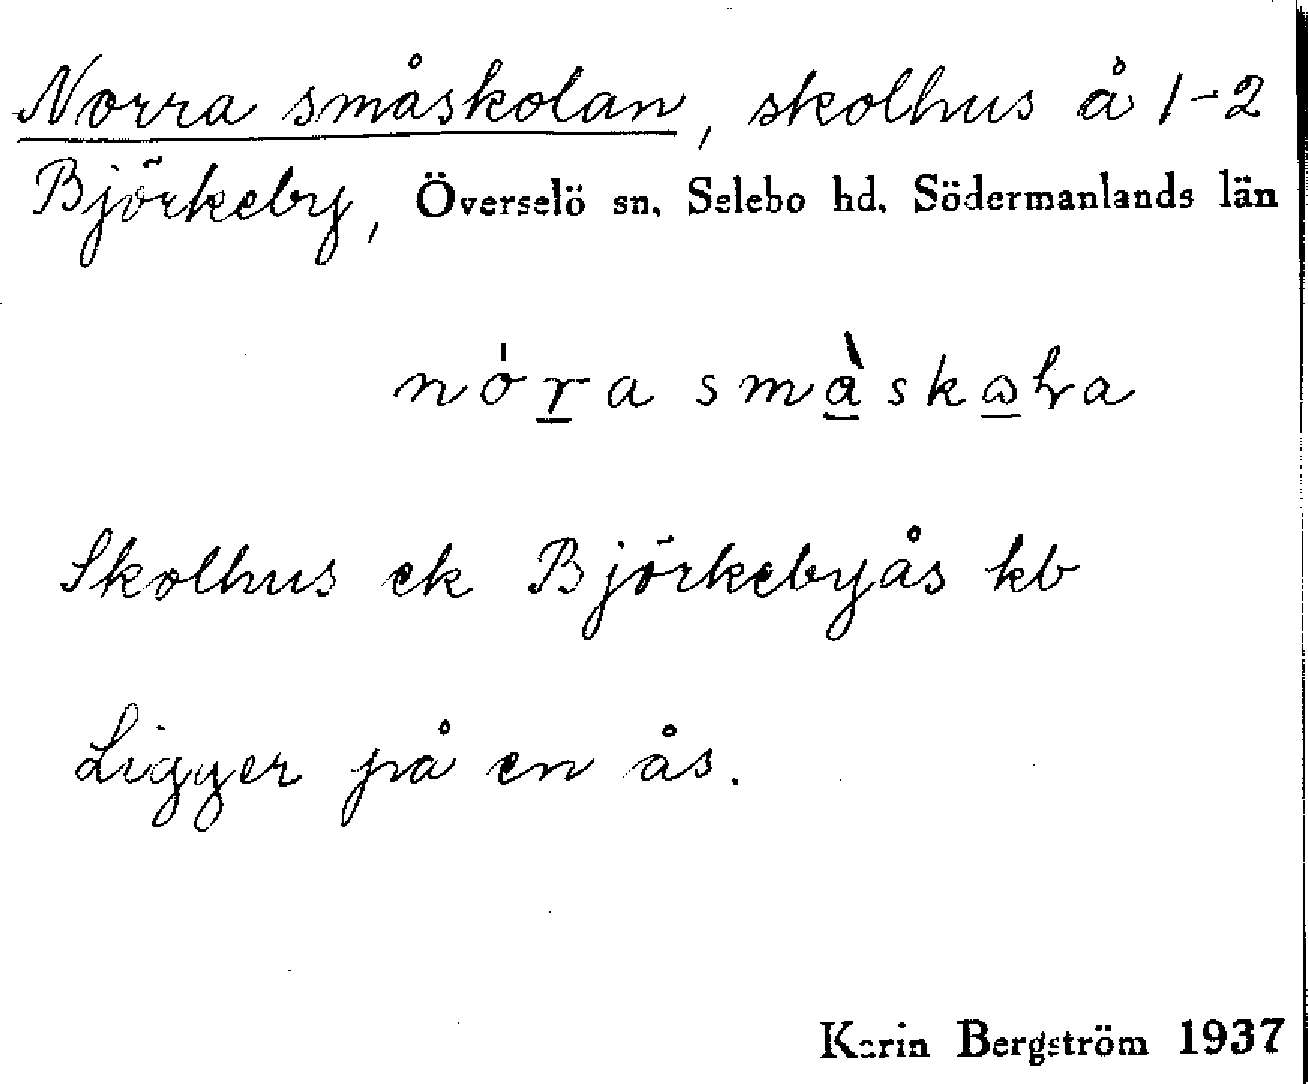 Norra småskolan, skolhus å 1-2
Björkeby, Överselö sn, Selebo hd. Södermanlands län
nóra
Skolhus ek Björkebyås kb
Ligger på en ås.
Karin Bergström 1937